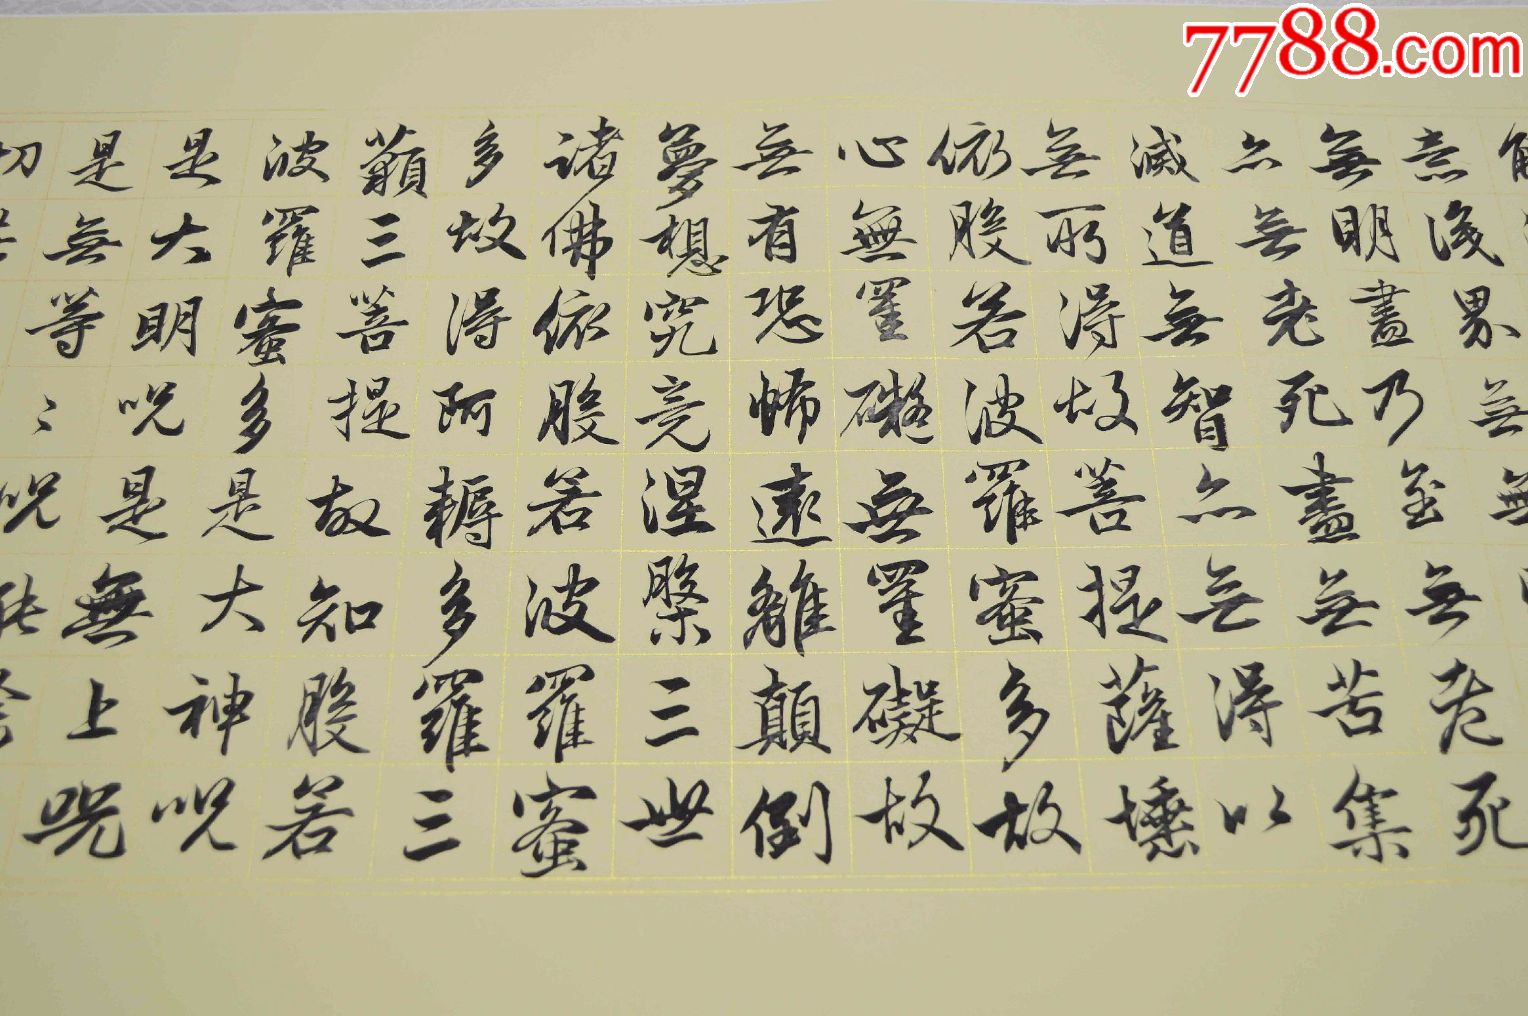 7788.com
意識界無無
無明盡乃至無老死
亦無老死盡無苦集
滅道無智亦無得以
無所得故菩提薩埵
依般若波羅蜜多故
心無罣礙無罣礙故
無有恐怖遠離顛倒
夢想究竟涅槃三世
諸佛依般若波羅蜜
多故得阿耨多羅三
藐三菩提故知般若
波羅蜜多是大神咒
是大明咒是無上咒
是無等〻咒能除
切